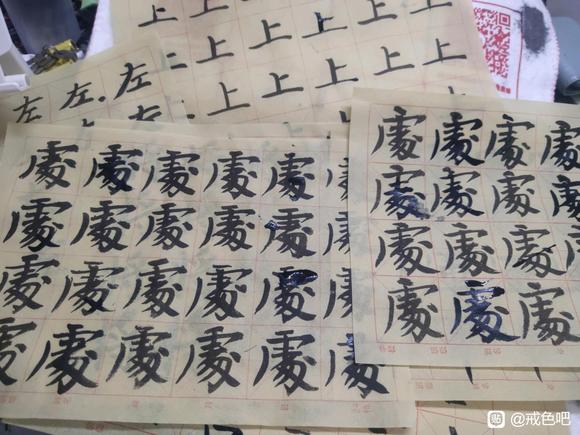 上 上 上 上 上
上 上 上 上 上 上
上 上 上 上 上 上
左 左 左
處 處 處 處 處
處 處 處 處 處
處 處 處 處 處
處 處 處 處 處
處 處 處 處
處 處 處 處
處 處 處 處
處 處 處
@戒色吧